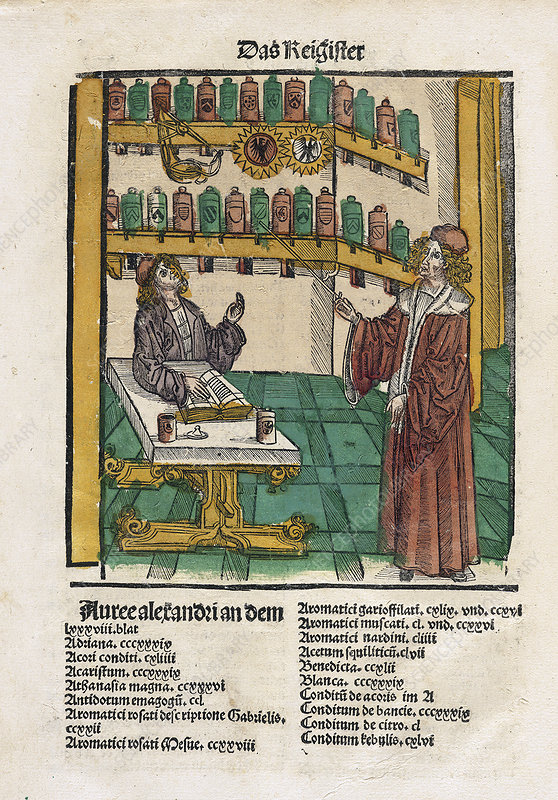 Das Reigister
Auree alexandri an dem
lxxxviii.blat
Adriana. ccccxxxix
Acori conditi. cxliiii
Acaristum. ccccxxxix
Athanasia magna. ccxxxvi
Antidotum emagogū. ccl
Aromatici rosati descriptione Gabrielis.
ccxxii
Aromatici rosati Mesue. ccxxviii
Aromatici garioffilari. cxlix. vnd. ccxxvi
Aromatici muscati. cl. vnd. ccxxvi
Aromatici nardini. cliiii
Acetum squiliticū. clvii
Benedicta. ccxlii
Blanca. ccccxxxix
Conditū de acoris im A
Conditum de bancie. ccccxxxix
Conditum de citro. cl
Conditum kebulis. cxlvi